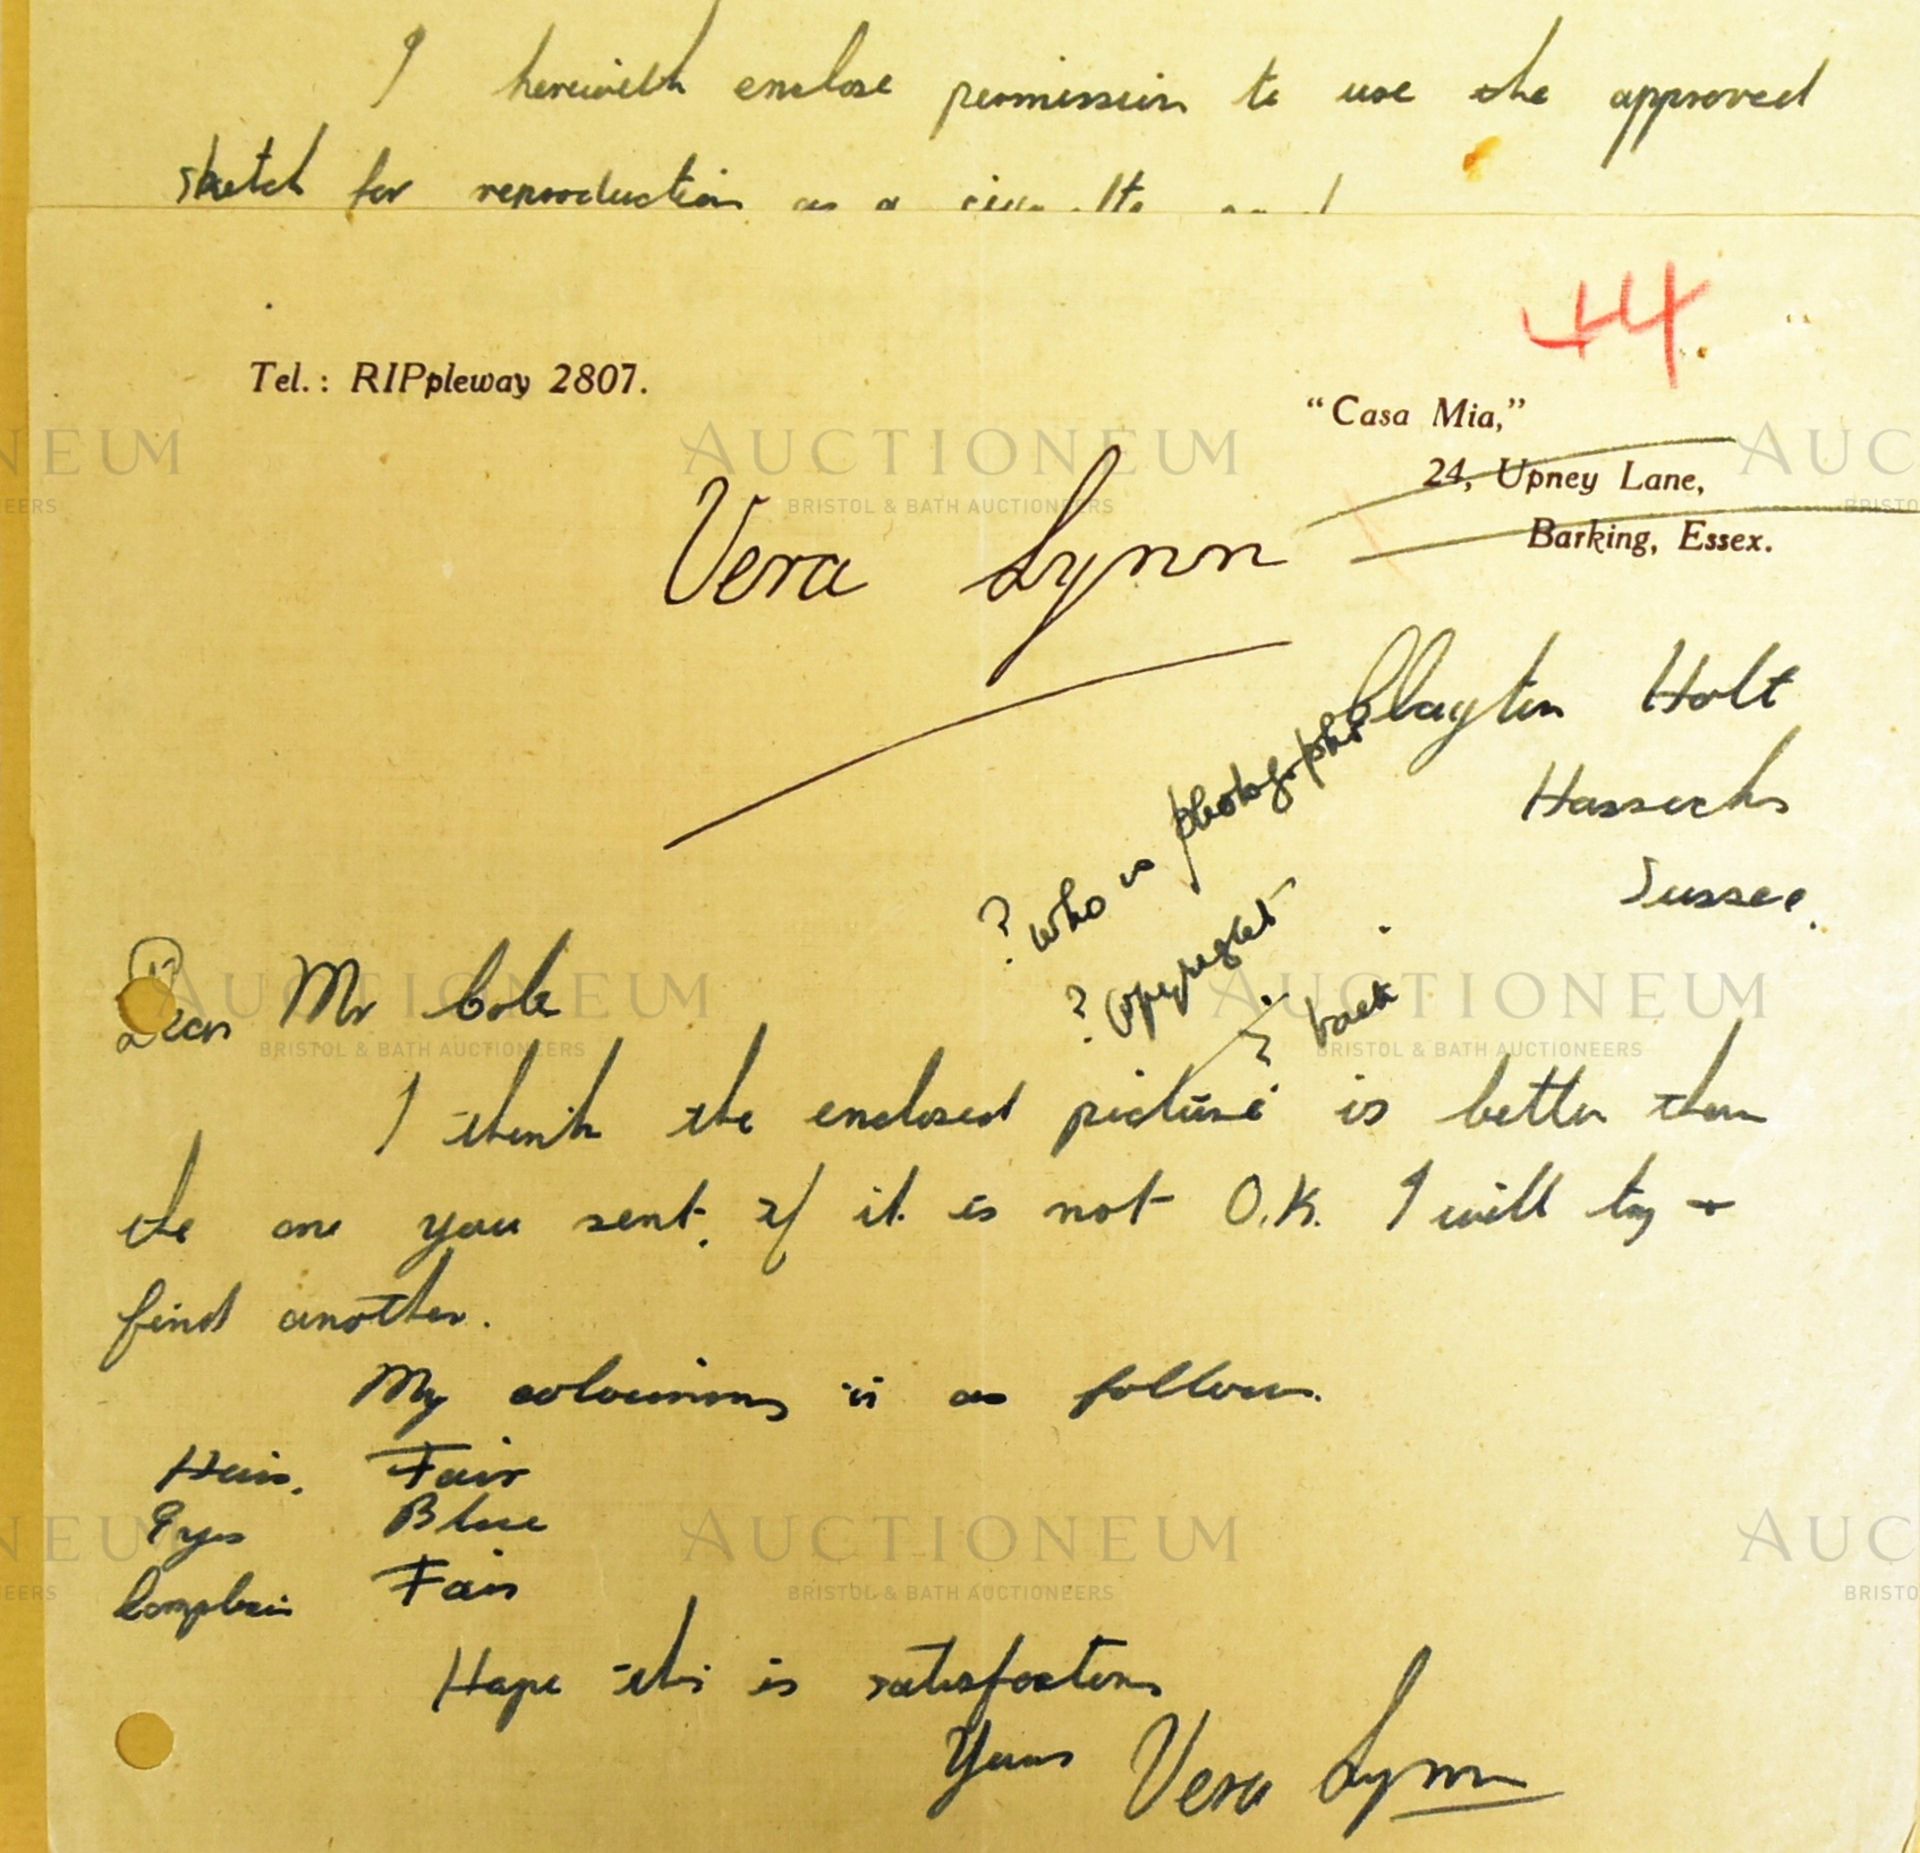 I herewith enclose permission to use the approved
sketch for reproduction as a
44.
Tel.: RIPpleway 2807.
"Casa Mia,"
24, Upney Lane,
Barking, Essex.
Vera Lynn
Clayton Holt
Hassocks
Sussex.
? who is photographer
? copyright
back
Dear Mr Cole
I think the enclosed picture is better than
the one you sent. If it is not O.K. I will try +
find another.
My colouring is as follows.
Hair. Fair
Eyes Blue
Complexion Fair
Hope this is satisfactory
Yours Vera Lynn
AUCTIONEUM
BRISTOL & BATH AUCTIONEERS